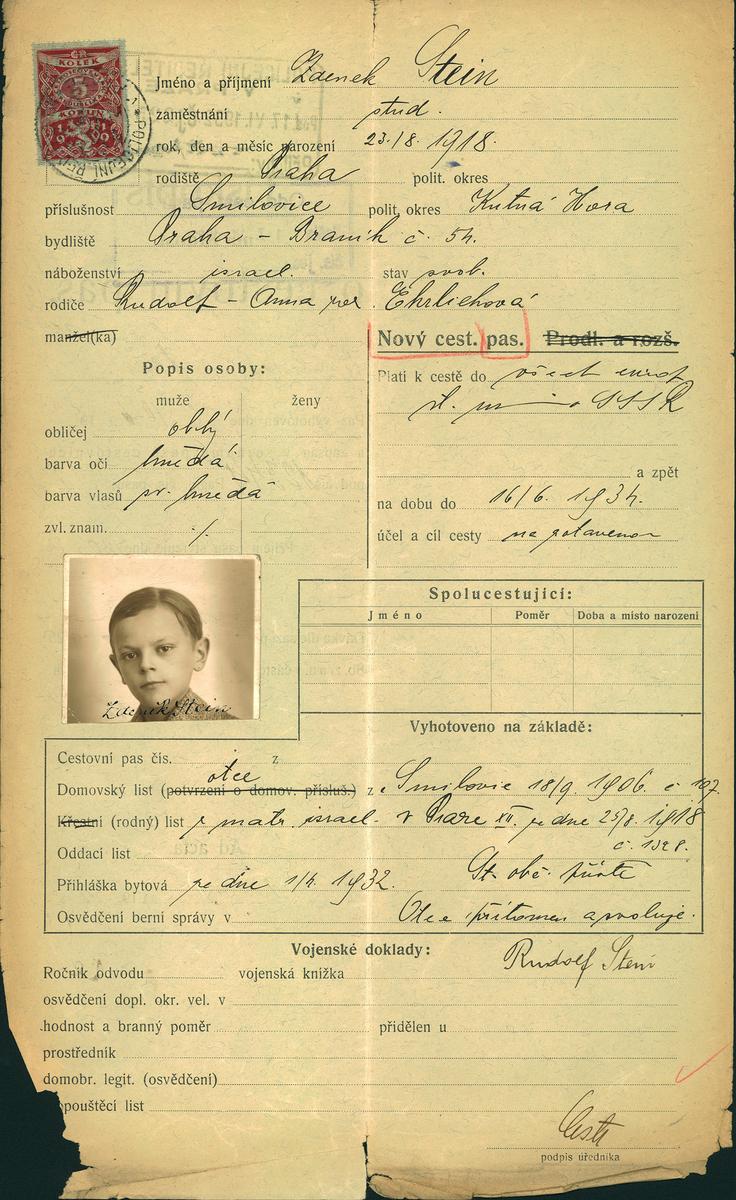 ČR
KOLEK
5
KORUN
1919
POLICEJNÍ ŘED
Jméno a příjmení Zdenek Stein
zaměstnání stud.
rok, den a měsíc narození 23./8. 1918.
rodiště Praha polit. okres
příslušnost Smilovice polit. okres Kutná Hora
bydliště Praha - Braník č. 54.
náboženství israel. stav svob.
rodiče Rudolf - Anna roz. Ehrlichová
manžel(ka)
Nový cest. pas. Prodl. a rozš.
Popis osoby:
Platí k cestě do všech
st. SSSR
muže ženy
obličej oblý
barva očí hnědá
barva vlasů sv. hnědá
zvl. znam. ./.
a zpět
na dobu do 16/6. 1934.
účel a cíl cesty na zotavenou
Zdeněk Stein
Spolucestující:
Jméno Poměr Doba a místo narození
Vyhotoveno na základě:
Cestovní pas čís. z
otce
Domovský list (potvrzení o domov. přísluš.) z Smilovic 18/9. 1906. č. 107.
Křestní (rodný) list z matr. israel. v Praze XII. ze dne 25/8. 1918
č. 1328.
Oddací list
Přihláška bytová ze dne 1/4. 1932. St. obč.
Osvědčení berní správy v Otec přítomen a svoluje.
Vojenské doklady:
Rudolf Stein
Ročník odvodu vojenská knížka
osvědčení dopl. okr. vel. v
hodnost a branný poměr přidělen u
prostředník
domobr. legit. (osvědčení)
opouštěcí list
podpis úředníka